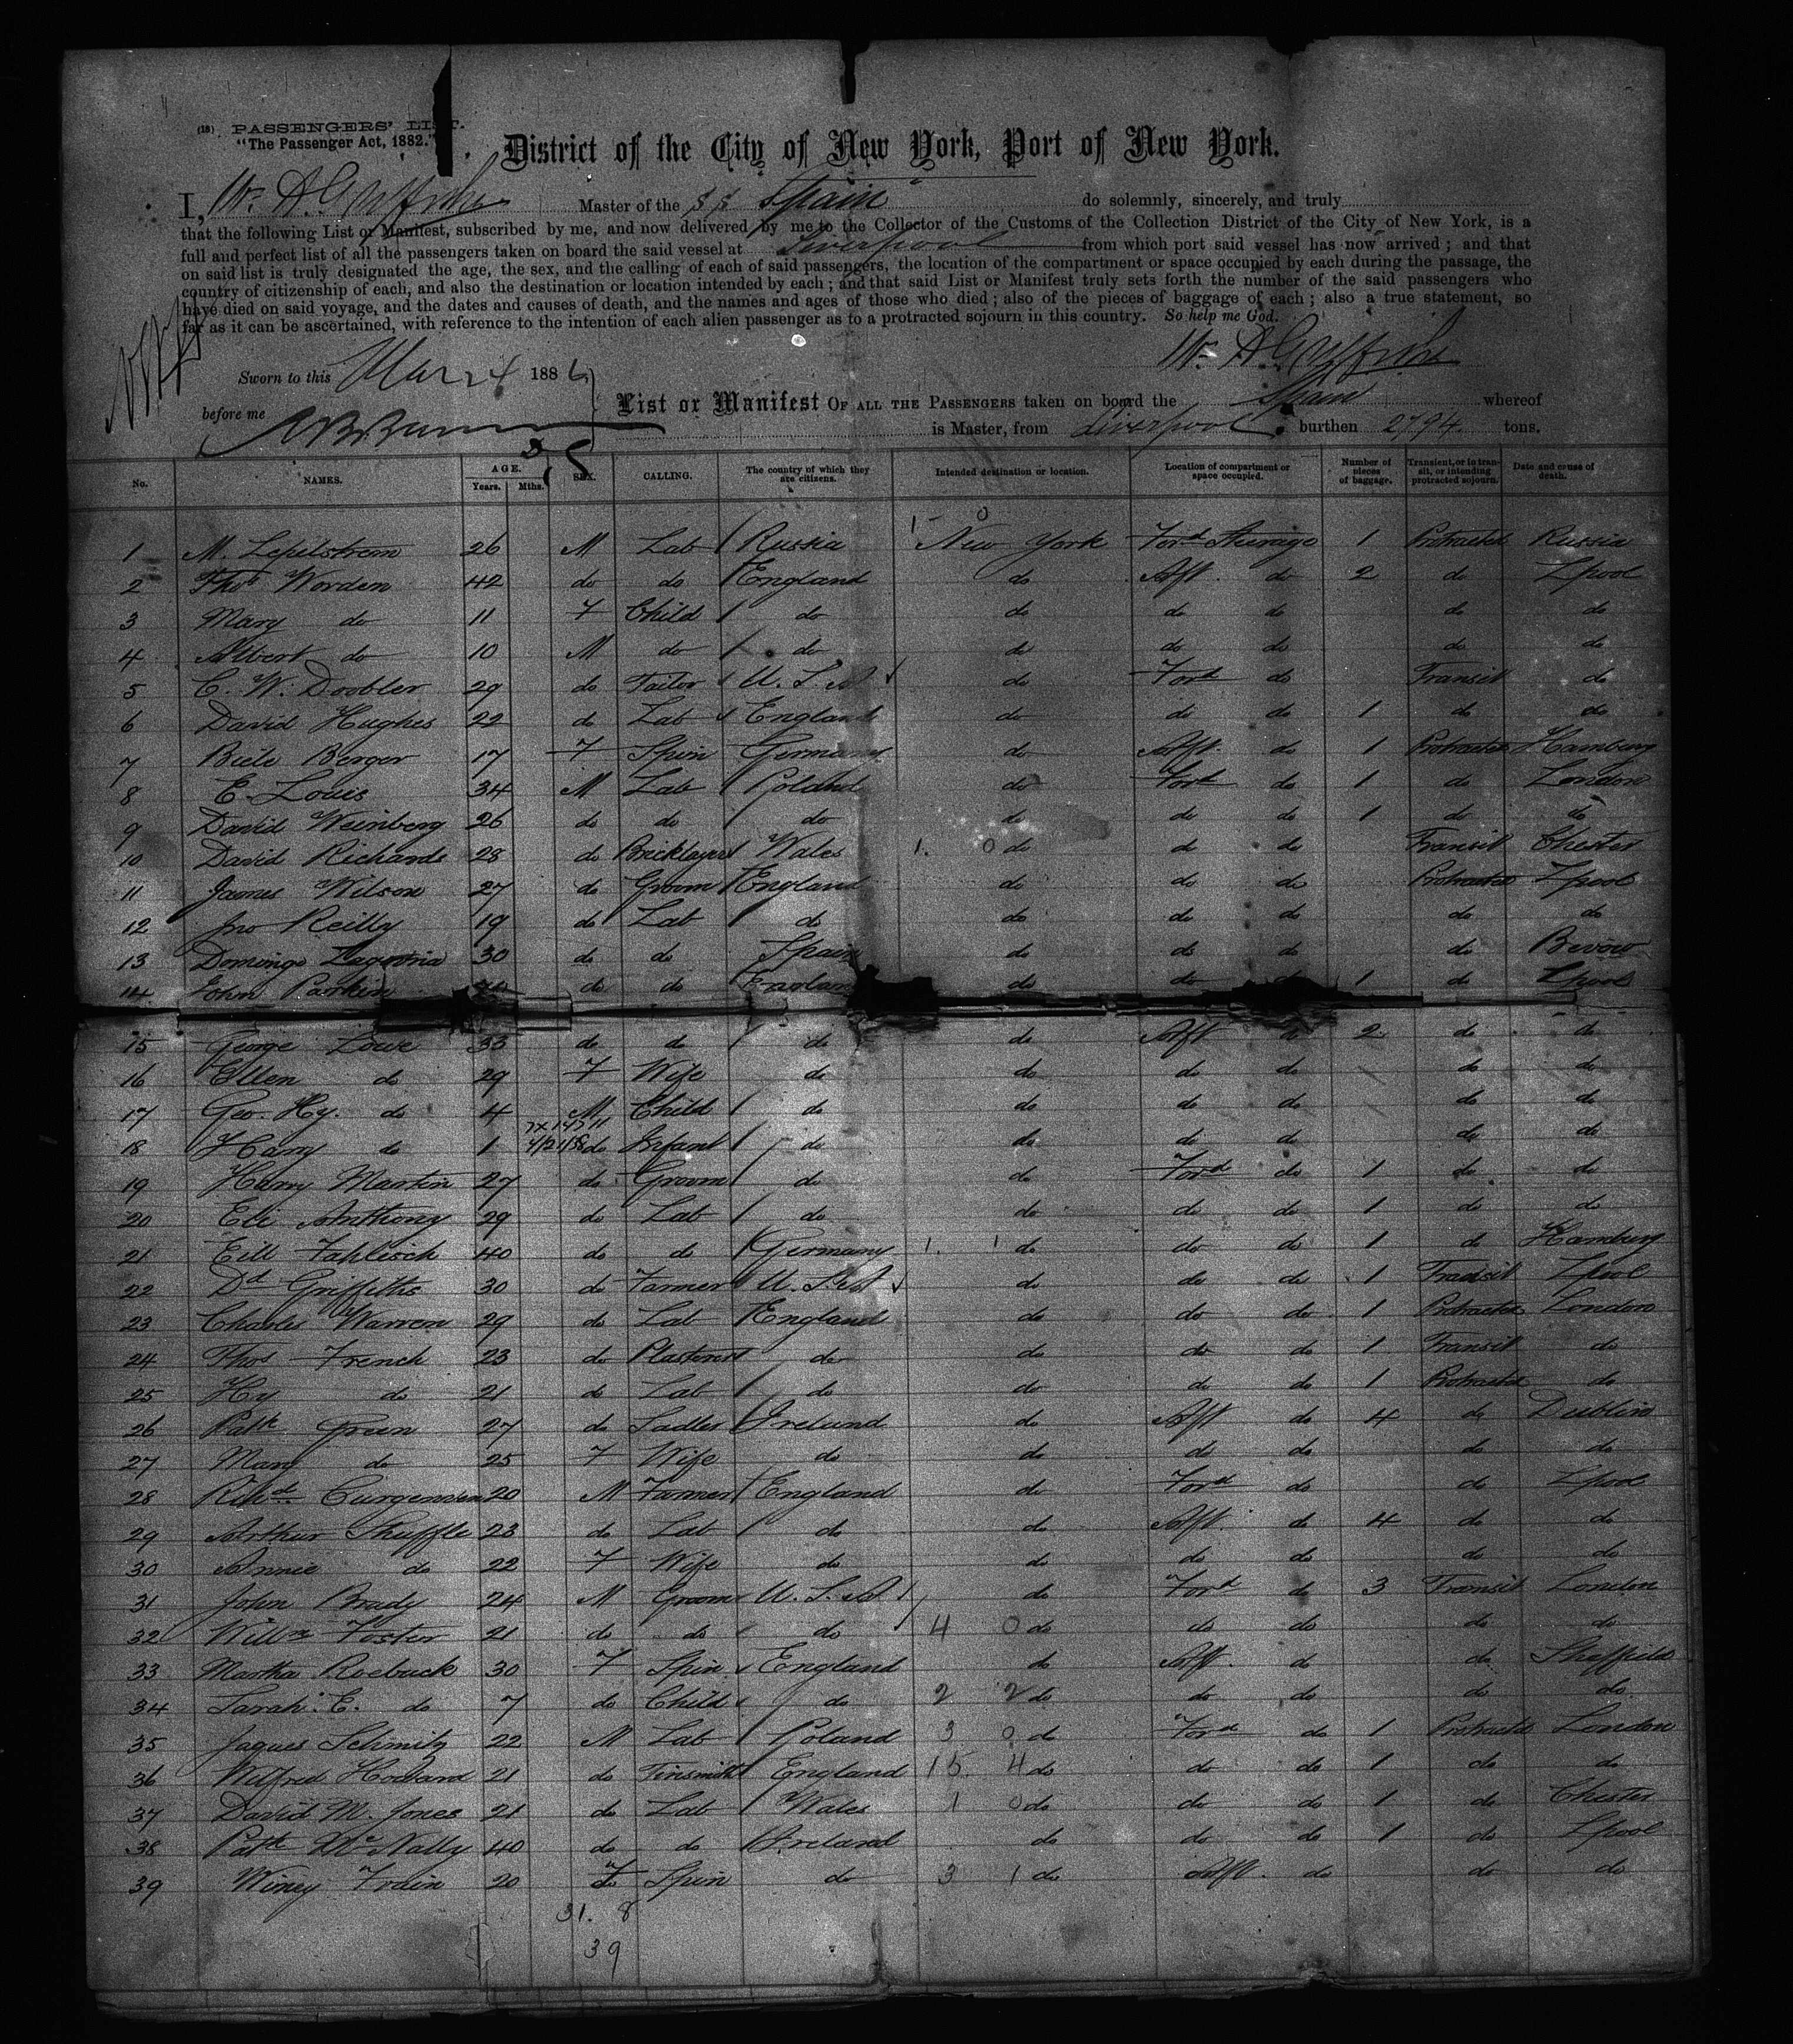 (18) PASSENGERS' LIST.
"The Passenger Act, 1882."
District of the City of New York, Port of New York.
I, Master of the S/S Spain do solemnly, sincerely, and truly
that the following List or Manifest, subscribed by me, and now delivered by me to the Collector of the Customs of the Collection District of the City of New York, is a
full and perfect list of all the passengers taken on board the said vessel at Liverpool from which port said vessel has now arrived; and that
on said list is truly designated the age, the sex, and the calling of each of said passengers, the location of the compartment or space occupied by each during the passage, the
country of citizenship of each, and also the destination or location intended by each; and that said List or Manifest truly sets forth the number of the said passengers who
have died on said voyage, and the dates and causes of death, and the names and ages of those who died; also of the pieces of baggage of each; also a true statement, so
far as it can be ascertained, with reference to the intention of each alien passenger as to a protracted sojourn in this country. So help me God.
Sworn to this Mar 24 1886
before me
List or Manifest OF ALL THE PASSENGERS taken on board the Spain whereof
is Master, from Liverpool burthen 2794 tons.
No. NAMES. AGE. Years. Mths. SEX. CALLING. The country of which they are citizens. Intended destination or location. Location of compartment or space occupied. Number of pieces of baggage. Transient, or in transit, or intending protracted sojourn. Date and cause of death.
1 M. Lepilstrem 26 M Lab Russia New York Ford Sturage 1 Protracted Russia
2 Thos Worden 42 do do England do Aft do 2 do Lpool
3 Mary do 11 F Child do do do do do do
4 Albert do 10 M do do do do do do do
5 C. W. Doobler 29 do Tailor U.S.A do Ford do Transit do
6 David Hughes 22 do Lab England do do do 1 do do
7 Biele Berger 17 F Spin Germany do Aft do 1 Protracted Hamburg
8 E. Louis 34 M Lab Poland do Ford do 1 do London
9 David Weinberg 26 do do do do do do 1 do do
10 David Richards 28 do Bricklayer Wales do do do Transit Chester
11 James Wilson 27 do Groom England do do do Protracted Lpool
12 Jno Reilly 19 do Lab do do do do do do
13 Domingo 30 do do Spain do do do do
14 John Parkin do do England do do do 1 do Lpool
15 George Lowe 33 do do do do Aft do 2 do do
16 Ellen do 29 F Wife do do do do do do
17 Geo. Hy. do 4 M Child do do do do do do
18 Harry do 1 do Infant do do do do do do
19 Harry Martin 27 do Groom do do Ford do 1 do do
20 Eli Anthony 29 do Lab do do do do 1 do do
21 Eill Fahlisch 40 do do Germany do do do 1 do Hamburg
22 Dd Griffiths 30 do Farmer U.S.A do do do 1 Transit Lpool
23 Charles Warren 29 do Lab England do do do 1 Protracted London
24 Thos French 23 do Plasterer do do do do 1 Transit do
25 Hy do 21 do Lab do do do do 1 Protracted do
26 Patk Green 27 do Sadler Ireland do Aft do 4 do Dublin
27 Mary do 25 F Wife do do do do do do
28 Richd Curgenven 20 M Farmer England do Ford do do Lpool
29 Arthur Shuffle 23 do Lab do do Aft do 4 do do
30 Annie do 22 F Wife do do do do do do
31 John Brady 24 M Groom U.S.A do Ford do 3 Transit London
32 Willm Foster 21 do do do 4 0 do do do do do
33 Martha Roebuck 30 F Spin England do Aft do do Sheffield
34 Sarah E. do 7 do Child do 2 2 do do do do do
35 Jaques Schmitz 22 M Lab Poland 3 0 do Ford do 1 Protracted London
36 Wilfred Howard 21 do Tinsmith England 15 4 do do do 1 do do
37 David M. Jones 21 do Lab Wales 1 0 do do do 1 do Chester
38 Patk McNally 40 do do Ireland do do do 1 do Lpool
39 Winey Train 20 F Spin do 3 1 do Aft do do do
31. 8
39